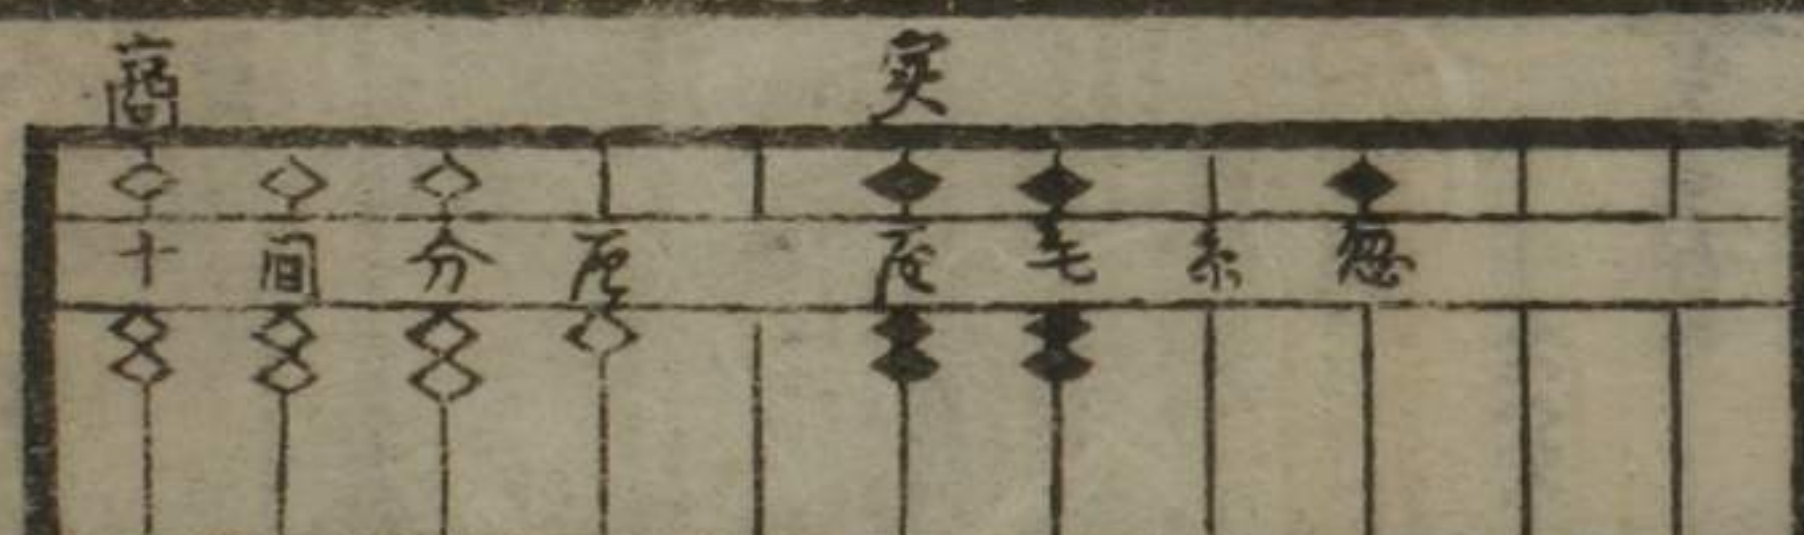 商 实
十 間 分 厘 厘 毛 糸 忽